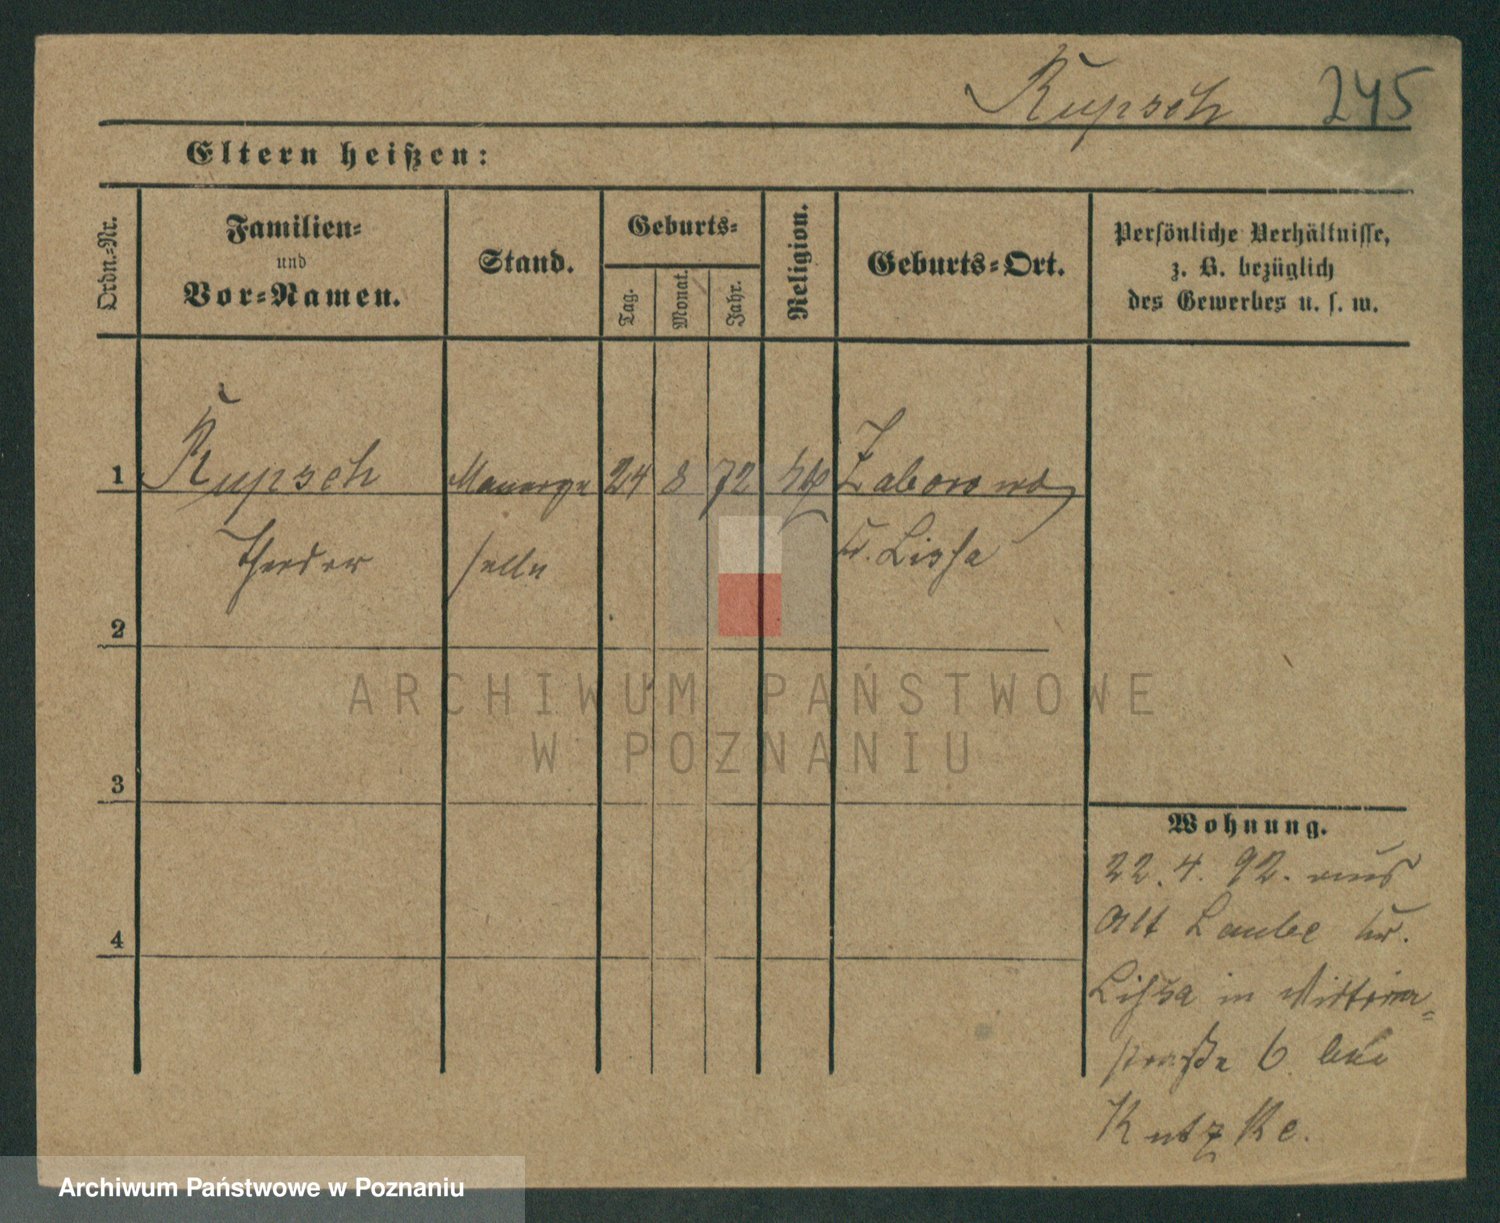 Rupsch 245
Eltern heißen:
Ordn.-Nr.
Familien-
und
Vor-Namen.
Stand.
Geburts-
Tag.
Monat.
Jahr.
Religion.
Geburts-Ort.
Persönliche Verhältnisse,
z. B. bezüglich
des Gewerbes u. s. w.
1 Rupsch Maurerge 24 8 72 Zaborowo
Theodor selle Kr. Lissa
2
3
4
Wohnung.
22. 4. 92. aus
Alt Laube Kr.
Lissa in Viktoria=
straße 6 bei
Kutzke.
ARCHIWUM PAŃSTWOWE
W POZNANIU
Archiwum Państwowe w Poznaniu